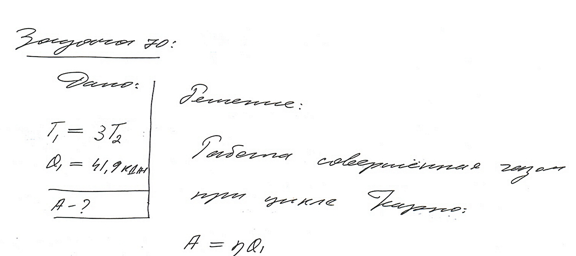 Задача 70:
Дано:
Решение:
T₁ = 3T₂
Q₁ = 41,9 кДж
A - ?
Работа совершённая газом
при цикле Карно:
A = ηQ₁